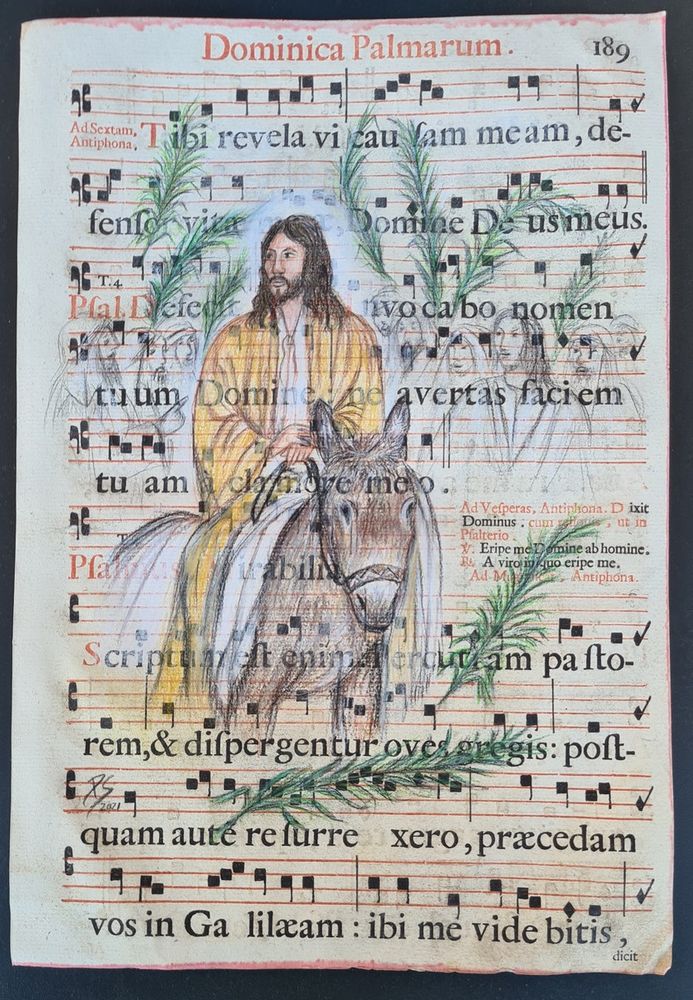 Dominica Palmarum. 189
Ad Sextam,
Antiphona.
Tibi revela vi cau ſam meam, de-
vitæ Domine De us meus.
T.4.
Pſal. nvo ca bo nomen
tuum Domine : ne avertas faciem
tu am à clamore meo.
Ad Veſperas, Antiphona. D ixit
Dominus. cum , ut in
Pſalterio.
V. Eripe me Domine ab homine.
R. A viro iniquo eripe me.
Ad Antiphona.
T
Pſalmus
Scriptum eſt enim: Percutiam pa ſto-
rem,& diſpergentur oves gregis: poſt-
RS
2021
quam autē re ſurre xero, præcedam
vos in Ga lilæam : ibi me vide bitis,
dicit